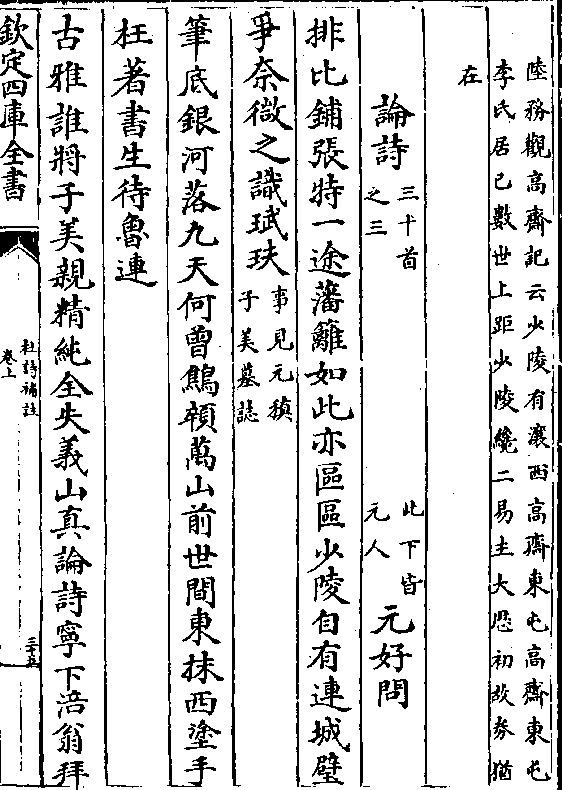 陸務觀高齋記云少陵有瀼西高齋東屯高齋東屯
李氏居已數世上距少陵纔二易主大厯初故券猶
在
論詩三十首之三此下皆元人元好問
排比鋪張特一途藩籬如此亦區區少陵自有連城璧
爭奈微之識珷玞事見元稹子美墓誌
筆底銀河落九天何曾鷦頻萬山前世間東抹西塗手
枉著書生待魯連
古雅誰將子美親精純全失義山真論詩寧下涪翁拜
欽定四庫全書
杜詩補註
卷上